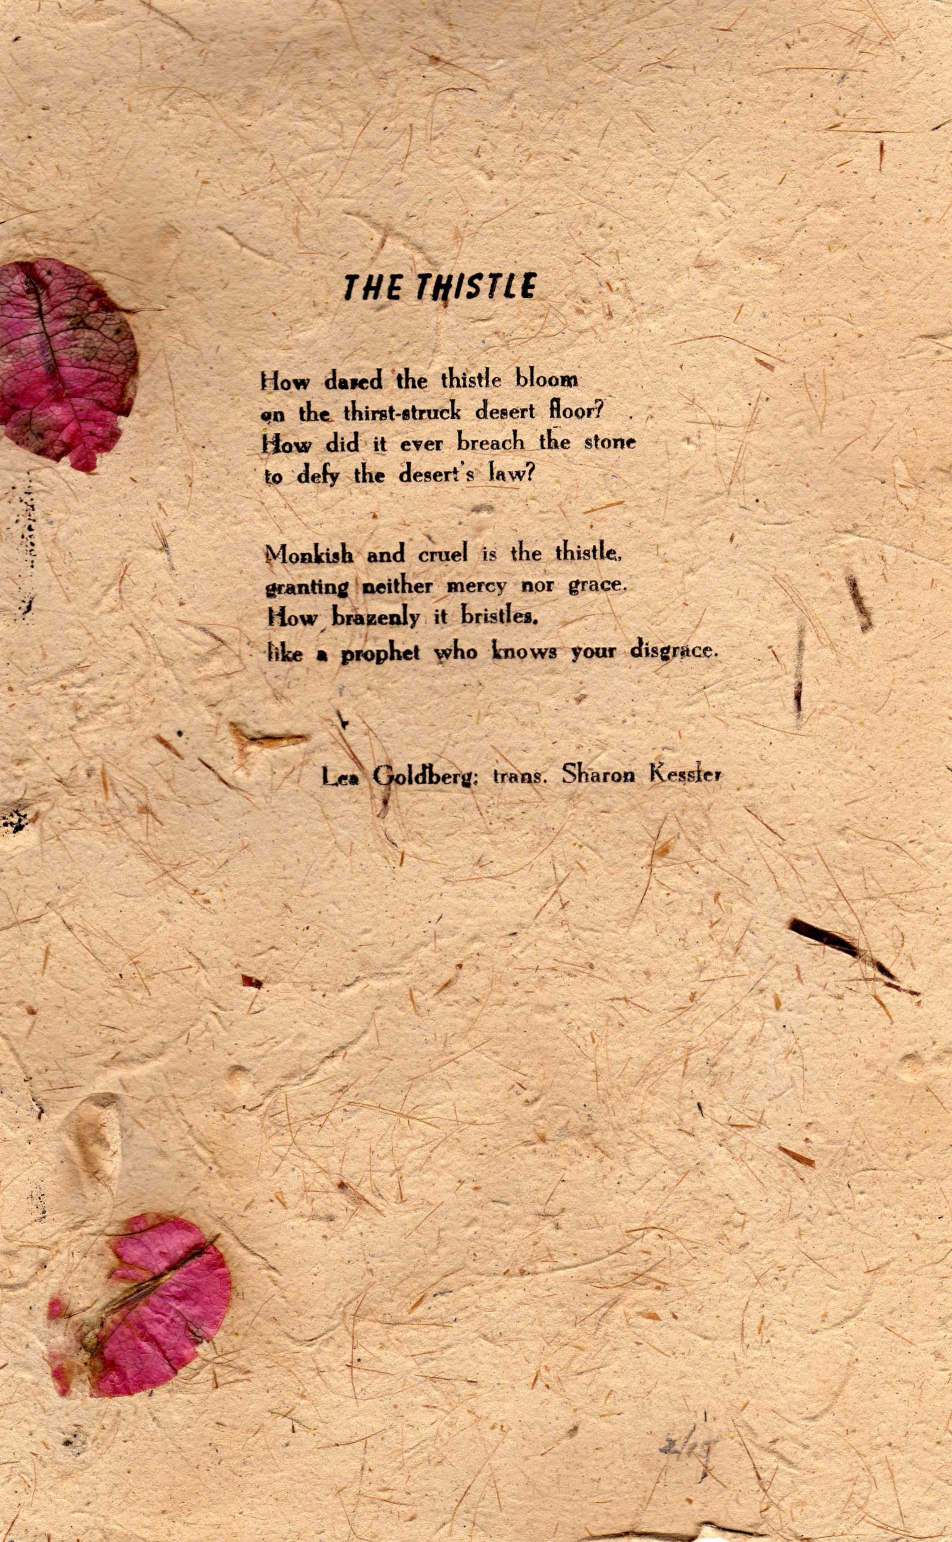 THE THISTLE
How dared the thistle bloom
on the thirst-struck desert floor?
How did it ever breach the stone
to defy the desert's law?
Monkish and cruel is the thistle,
granting neither mercy nor grace.
How brazenly it bristles,
like a prophet who knows your disgrace.
Lea Goldberg; trans. Sharon Kessler